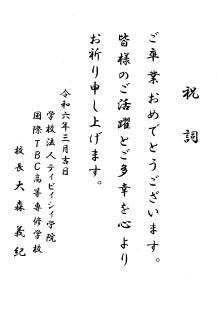 祝詞
ご卒業おめでとうございます。
皆様のご活躍とご多幸を心より
お祈り申し上げます。
令和六年三月吉日
学校法人ティビィシィ学院
国際TBC高等専修学校
校長 大森義紀